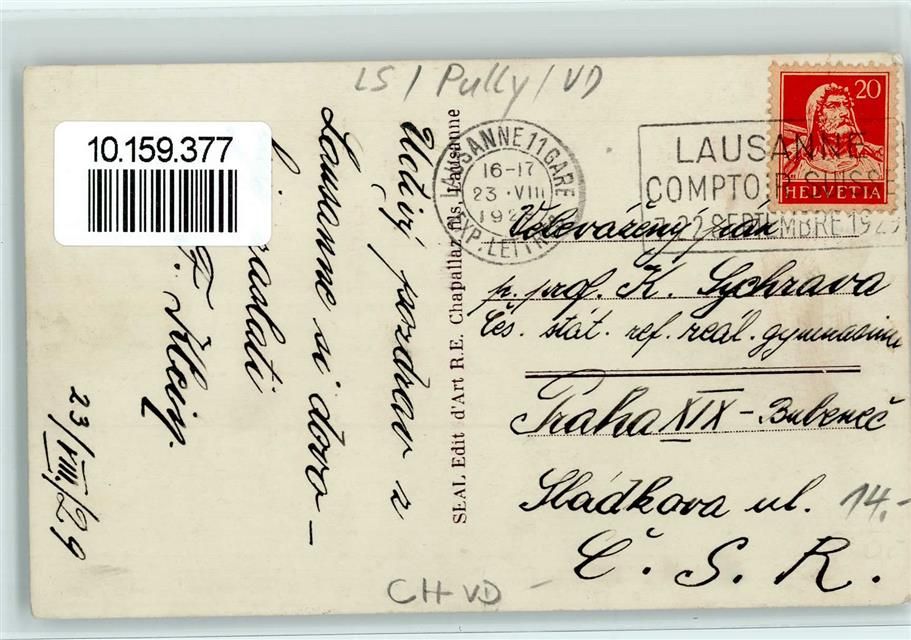 LS / Pully / VD
10.159.377
Uctivý pozdrav z
Lausanne si dovo-
zaslati
23/VIII./29
SEAL Edit d'Art R.E. Chapallaz fils, Lausanne
LAUSANNE 11 GARE
16-17
23.VIII
EXP. LETTRES
LAUSANNE
COMPTOIR SUISSE
7-22 SEPTEMBRE 1929
20
HELVETIA
Velevážený pán
p. prof. K. Sychrava
Čes. stát. ref. reál. gymnasium
Praha XIX - Bubeneč
Sládkova ul.
14.-
Č. S. R.
CH-VD